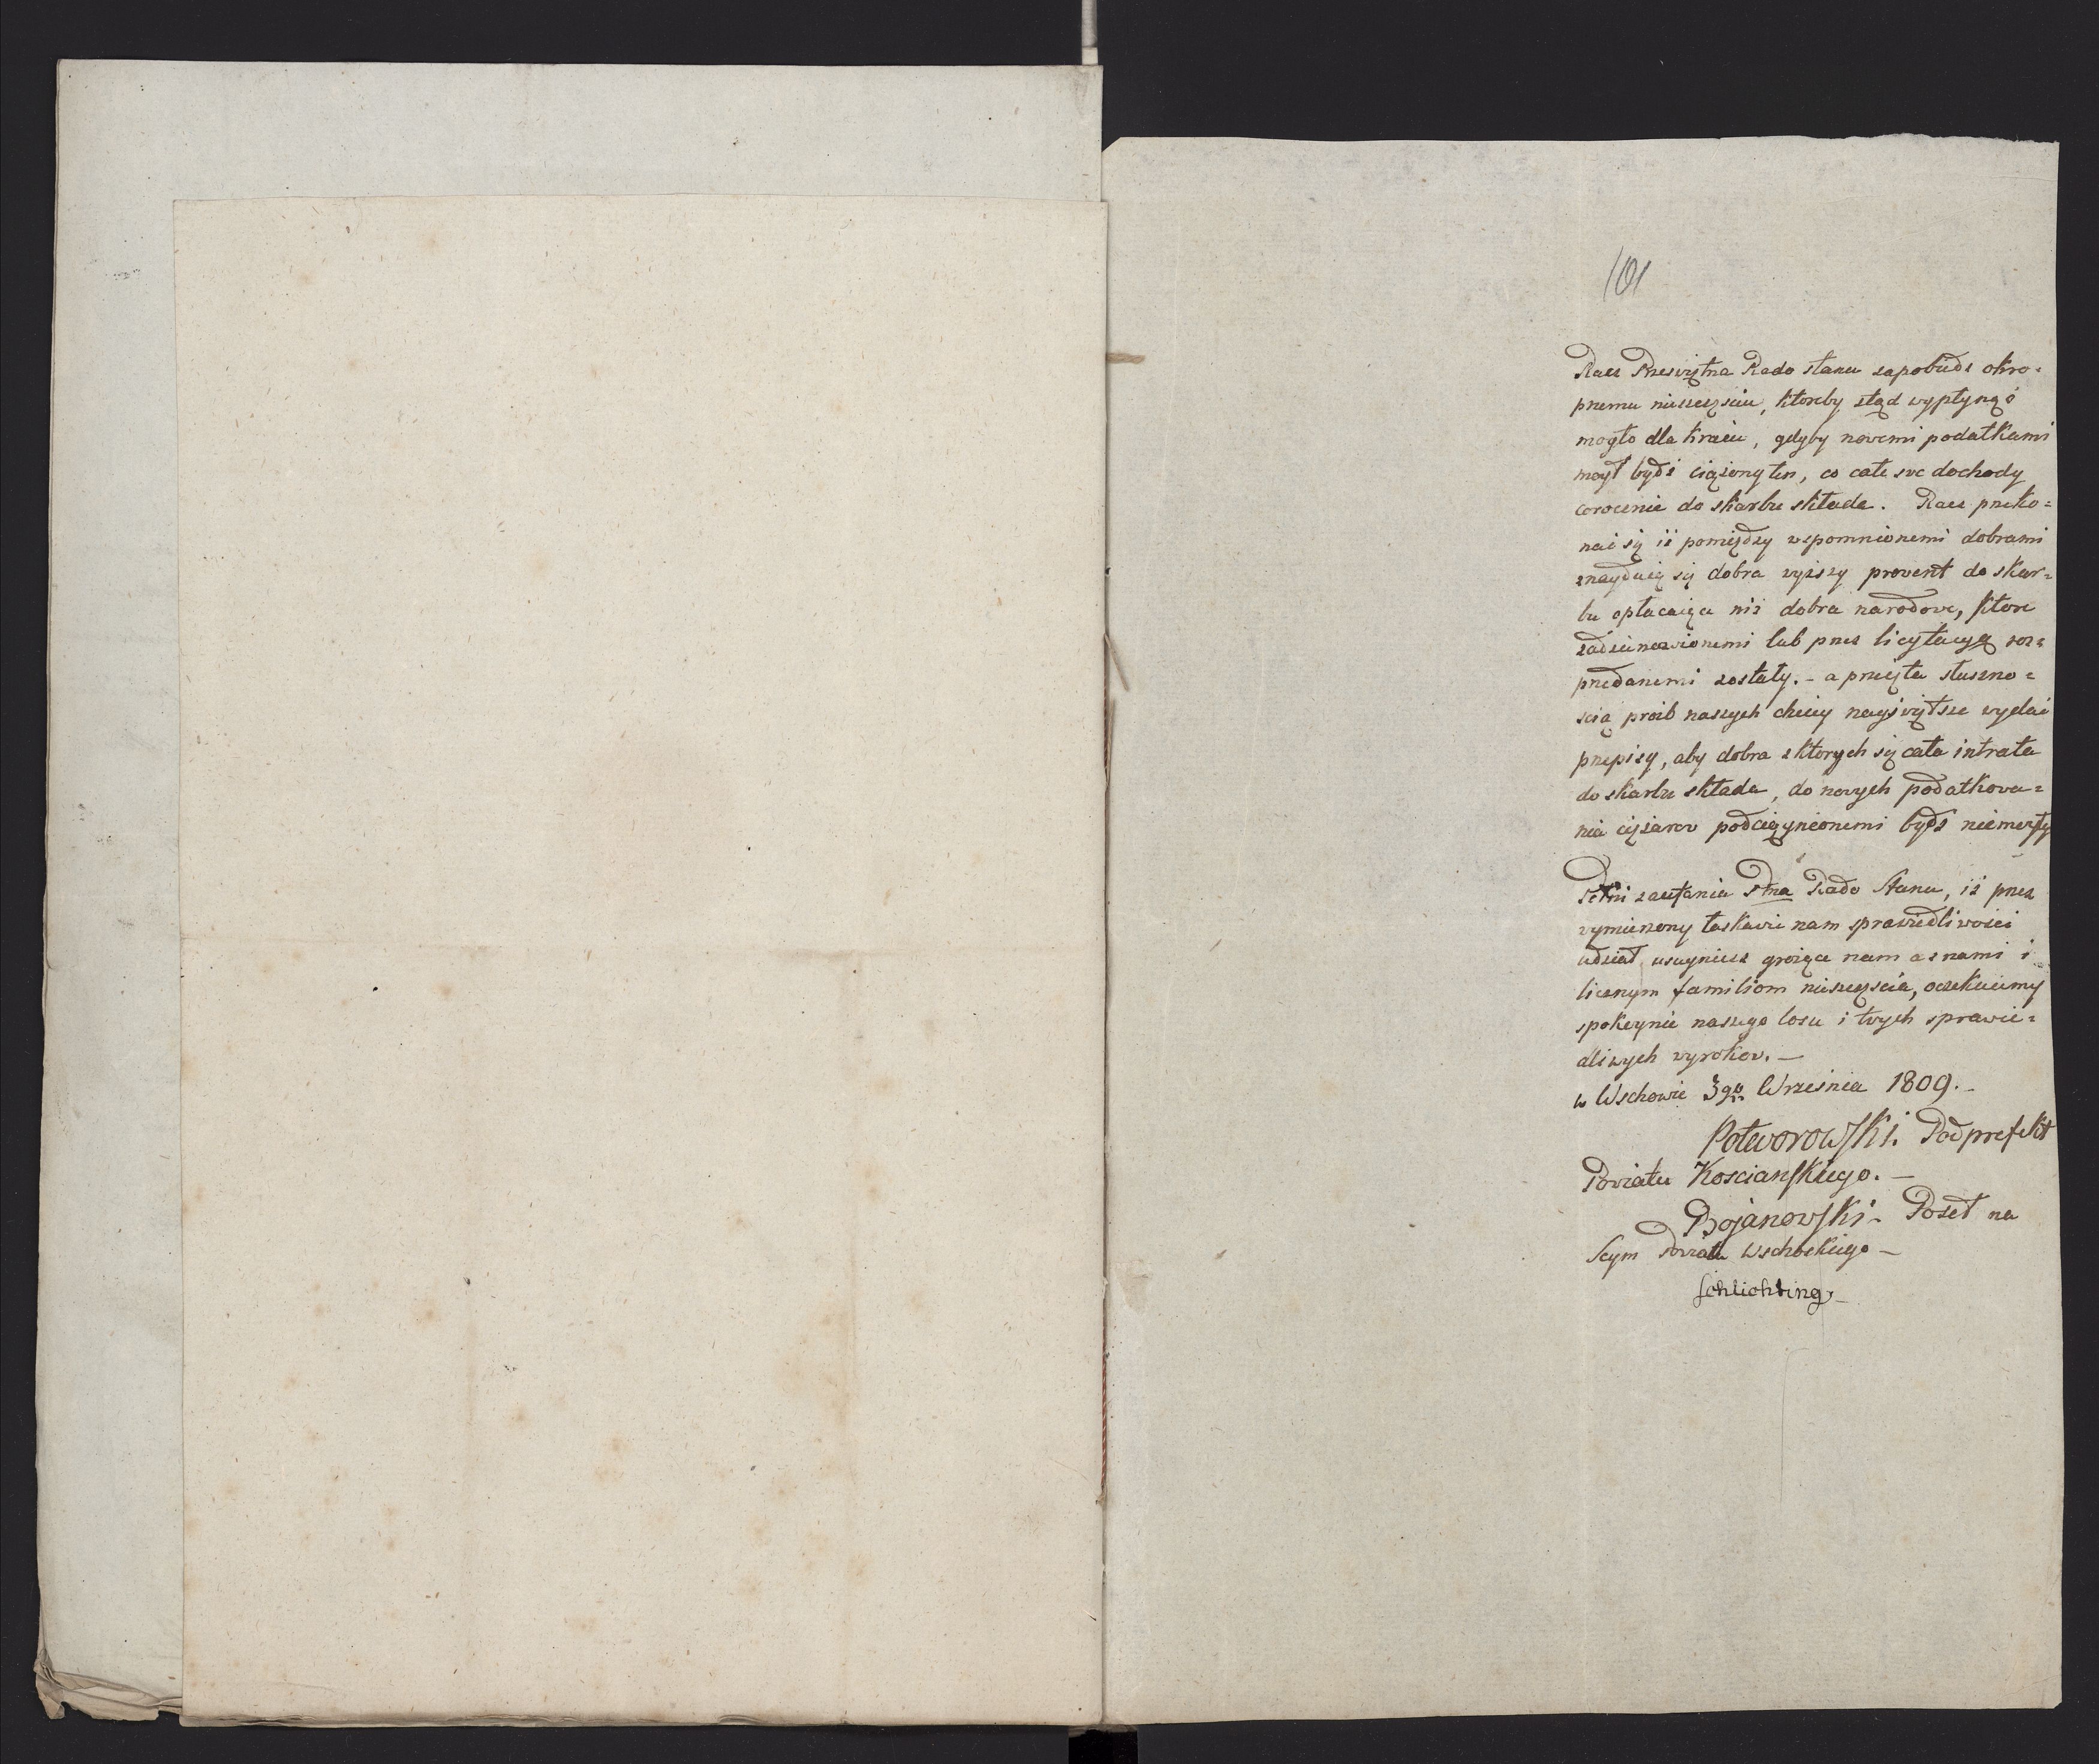 101
Racz Przeświętna Rado stanu zapobiedz okro=
pnemu nieszczęściu, ktoreby ztąd wypłynąć
mogło dla kraiu, gdyby novemi podatkami
mogł bydź ciążony ten, co całe sve dochody
corocznie do skarbu składa. Racz przeko=
nać się iż pomiędzy wspomnionemi dobrami
znayduią się dobra vyższy provent do skar=
bu opłacaiące niż dobra narodove, ktore
zadzierzawionemi lub przez licytacyą roz=
przedanemi zostały. - a przeięta słuszno=
scią prośb naszych chciey nayświętsze vydać
przepisy, aby dobra z ktorych się cała intrata
do skarbu składa, do novych podatkova=
nia ciężarov podciągnionemi bydź niemogły
Pełni zaufania Ptna Rado Stanu, iż przez
vymierzony łaskawie nam sprawiedliwości
udział usuyniesz grożące nam a z nami i
licznym familiom nieszczęścia, oczekuiemy
spokoynie naszego losu i tvych sprawie=
dliwych vyrokov. —
w Wschowie 3go Września 1809. -
Potworowski. Podprefekt
Poviatu Kosciańskiego. —
Bojanowski - Poseł na
Seym Poviatu Wschowskiego —
Schlichting. -